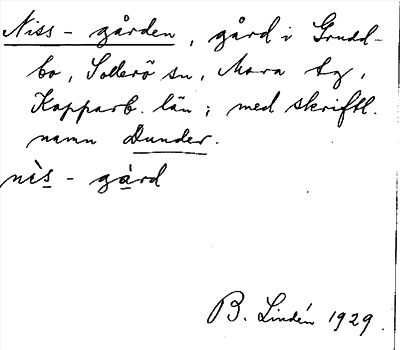 Niss-gården, gård i Grudd-
bo, Sollerö sn, Mora tg,
Kopparb. län; med skriftl.
namn Dunder.
nìs-gàrd
B. Lindén 1929.